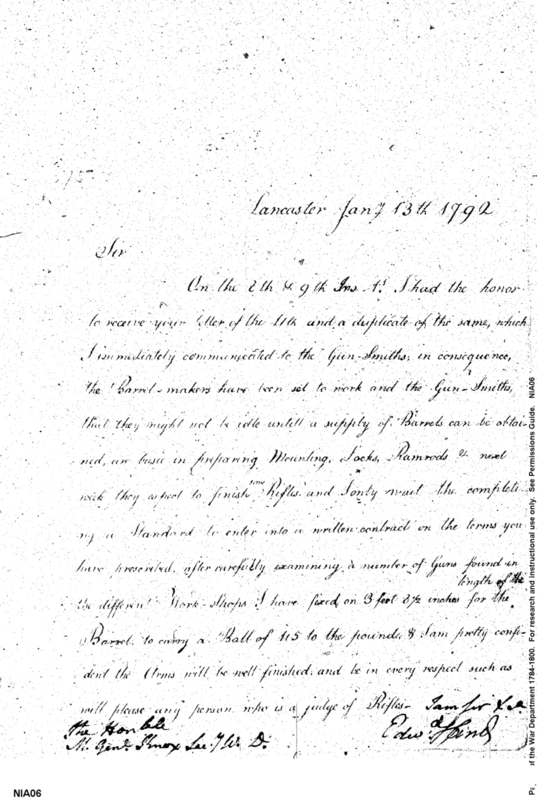 Lancaster Jany 13th 1792
Sir
On the 8th & 9th Inst. I had the honor
to receive your letter of the 4th and a duplicate of the same, which
I immediately communicated to the Gun-Smiths, in consequence,
the Barrel-makers have been set to work and the Gun-Smiths,
that they might not be idle untill a supply of Barrels can be obtai-
ned, are busie in preparing Mounting, Locks, Ramrods & next
week they expect to finish some Rifles and I only wait the completi-
ng a Standard to enter into a written contract on the terms you
have prescribed. after carefully examining a number of Guns found in
length of the
the different Work-Shops I have fixed on 3 feet 2½ inches for the
Barrel, to carry a Ball of 45 to the pound & I am pretty confi-
dent the Arms will be well finished, and be in every respect such as
will please any person who is a judge of Rifles- I am Sir &c
The Honble
M. Genl. Knox Sec'y W. D.
Edwd Hand
NIA06
of the War Department 1784-1800. For research and instructional use only. See Permissions Guide. NIA06